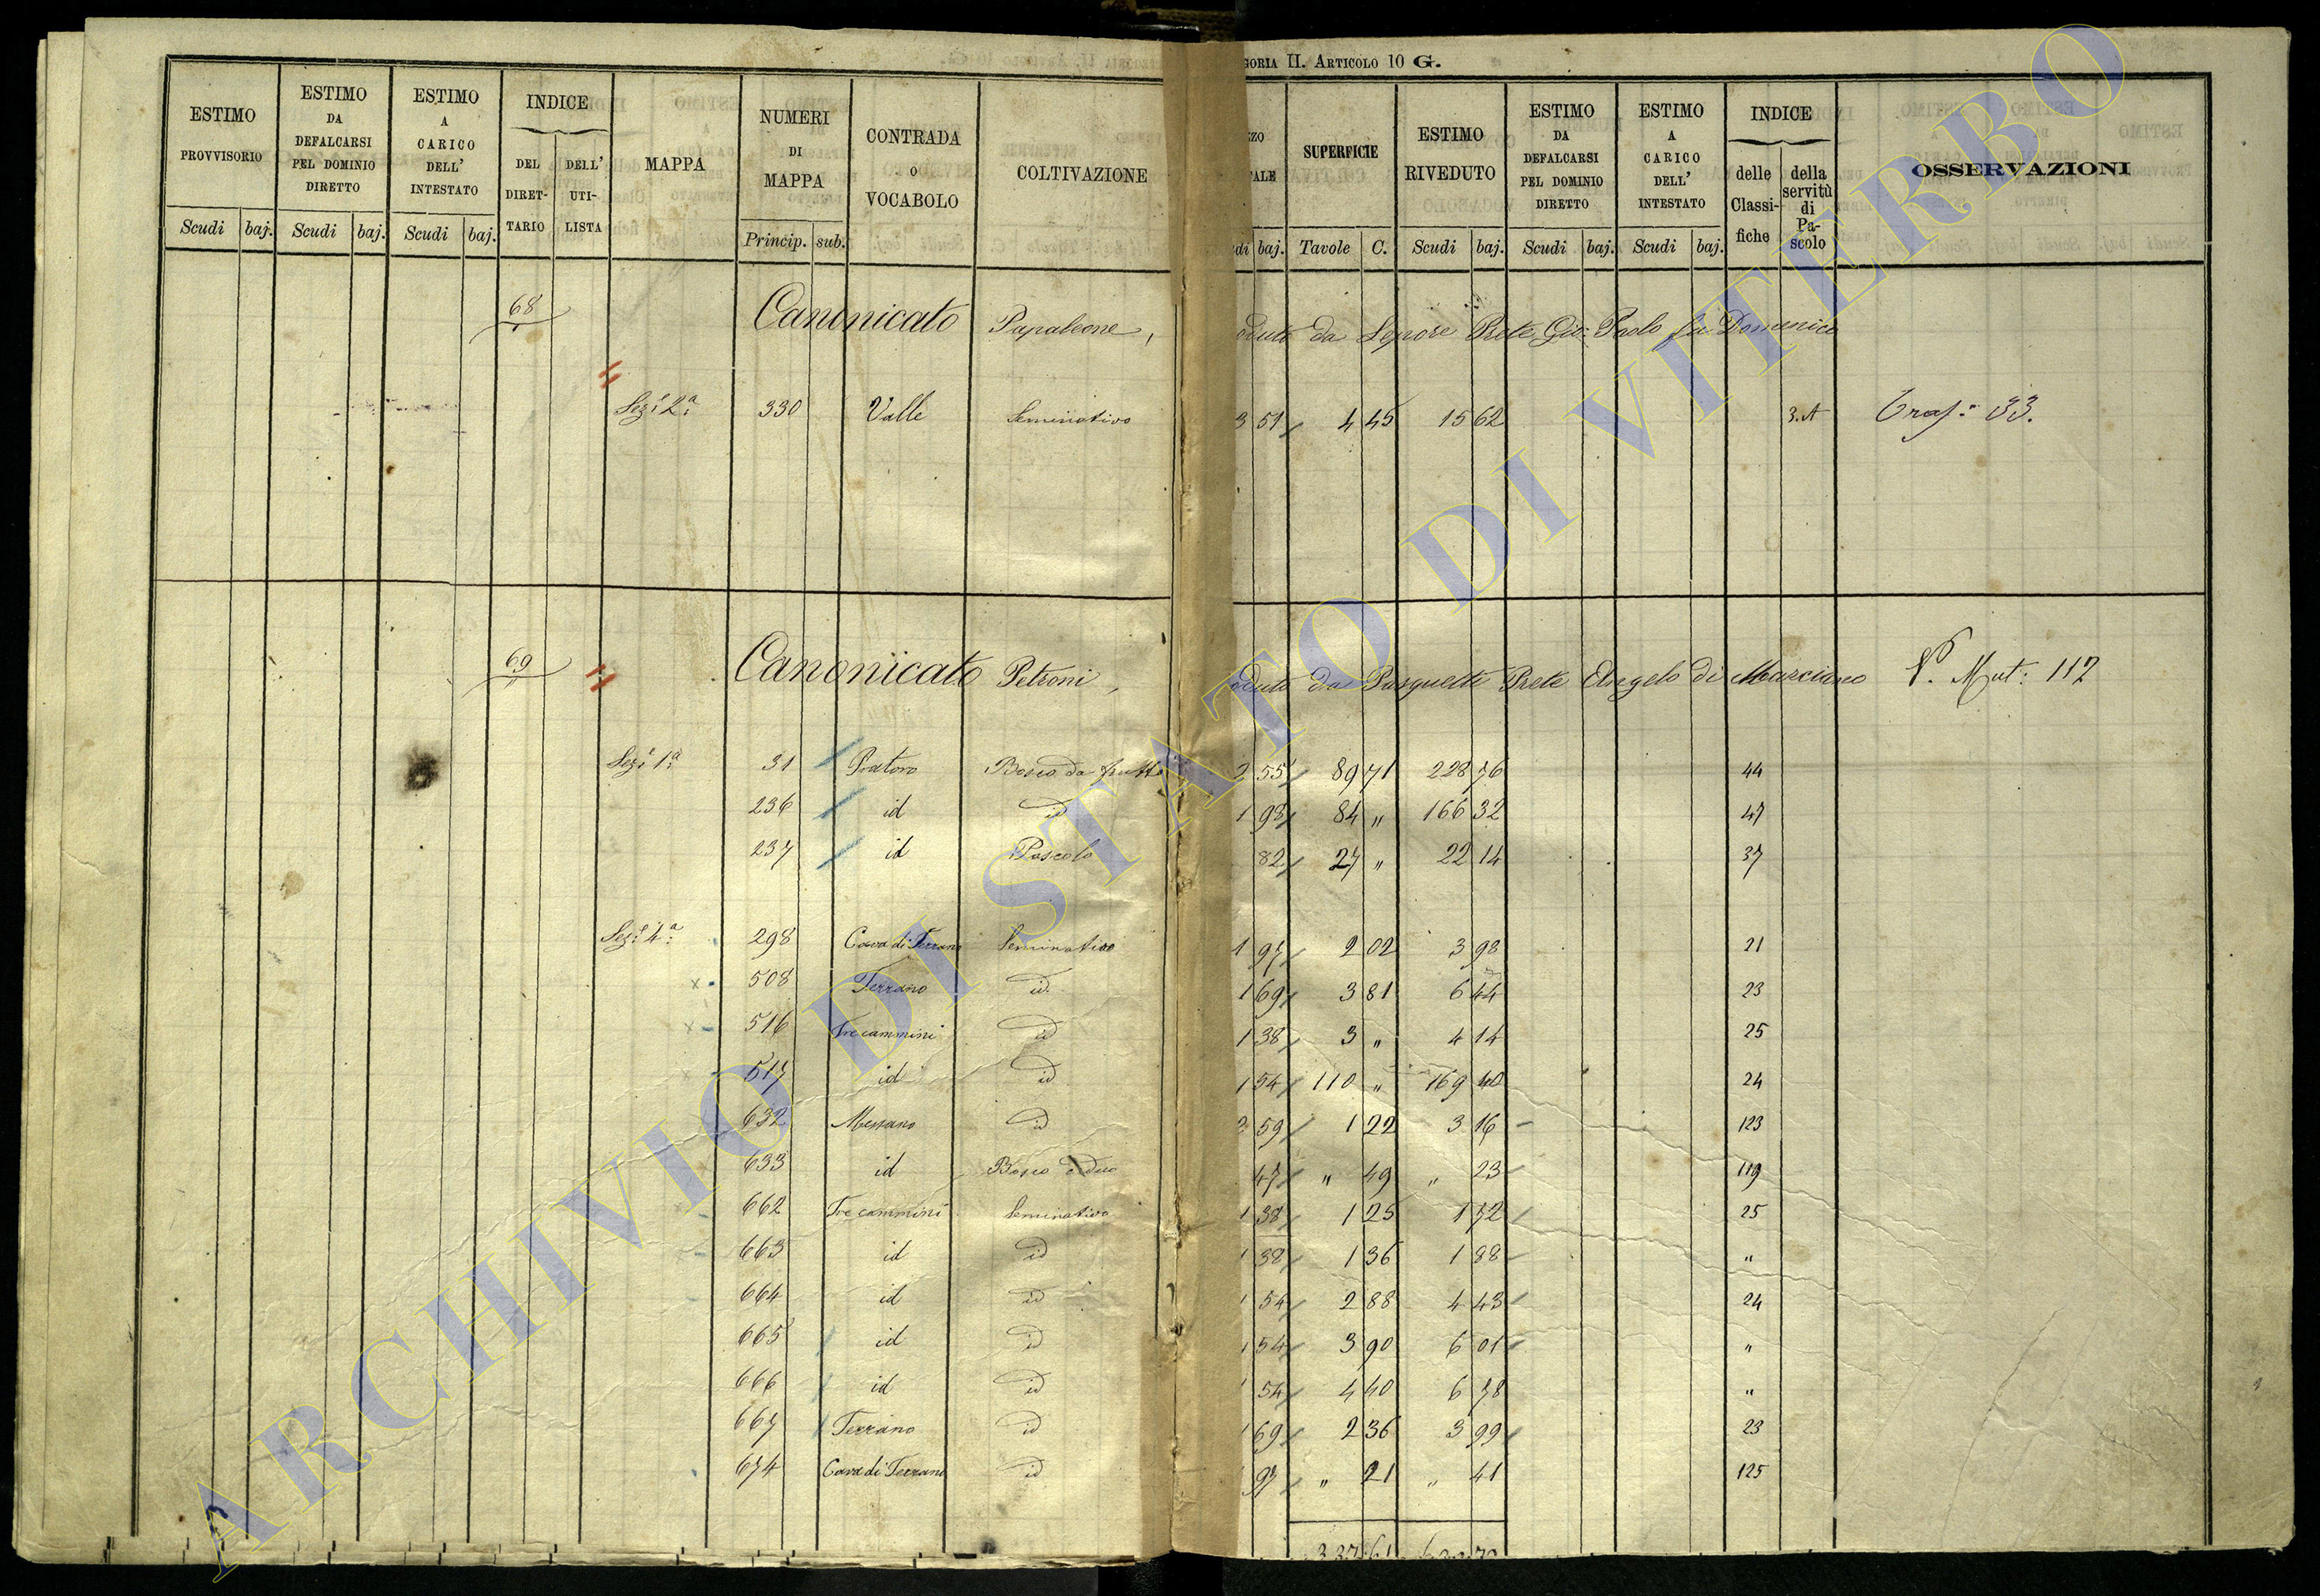 GORIA II. ARTICOLO 10 G.
ESTIMO PROVVISORIO
ESTIMO DA DEFALCARSI PEL DOMINIO DIRETTO
ESTIMO A CARICO DELL' INTESTATO
INDICE
DEL DIRET-TARIO
DELL' UTI-LISTA
MAPPA
NUMERI DI MAPPA
CONTRADA O VOCABOLO
COLTIVAZIONE
SUPERFICIE
ESTIMO RIVEDUTO
ESTIMO DA DEFALCARSI PEL DOMINIO DIRETTO
ESTIMO A CARICO DELL' INTESTATO
INDICE
delle Classi-fiche
della servitù di Pa-scolo
OSSERVAZIONI
Scudi baj. Scudi baj. Scudi baj. Princip. sub. baj. Tavole C. Scudi baj. Scudi baj. Scudi baj.
68 Canonicato Papaleone, oduto da Lepore Prete Gio: Paolo fu Domenico
Sez: 2a 330 Valle Seminativo 3 51 4 45 15 62 3.A Tras: 33.
69 Canonicato Petroni, oduto da Pasquetti Prete Angelo di Marciano V. Mut: 112
Sez: 1a 31 Pratoro Bosco da frutto 2 55 89 71 228 76 44
236 id id 1 98 84 " 166 32 47
237 id Pascolo 82 27 " 22 14 37
Sez: 4a 298 Cava di Terrano Seminativo 1 97 2 02 3 98 21
508 Terrano id 1 69 3 81 6 44 23
516 Tre cammini id 1 38 3 " 4 14 25
517 id id 1 54 110 " 169 40 24
632 Messano id 2 59 1 22 3 16 123
633 id Bosco ceduo 47 " 49 " 23 119
662 Tre cammini Seminativo 1 38 1 25 1 72 25
663 id id 1 38 1 36 1 88 "
664 id id 1 54 2 88 4 43 24
665 id id 1 54 3 90 6 01 "
666 id id 1 54 4 40 6 78 "
667 Terrano id 1 69 2 36 3 99 23
674 Cava di Terrano id 97 " 21 " 41 125
337 61
ARCHIVIO DI STATO DI VITERBO